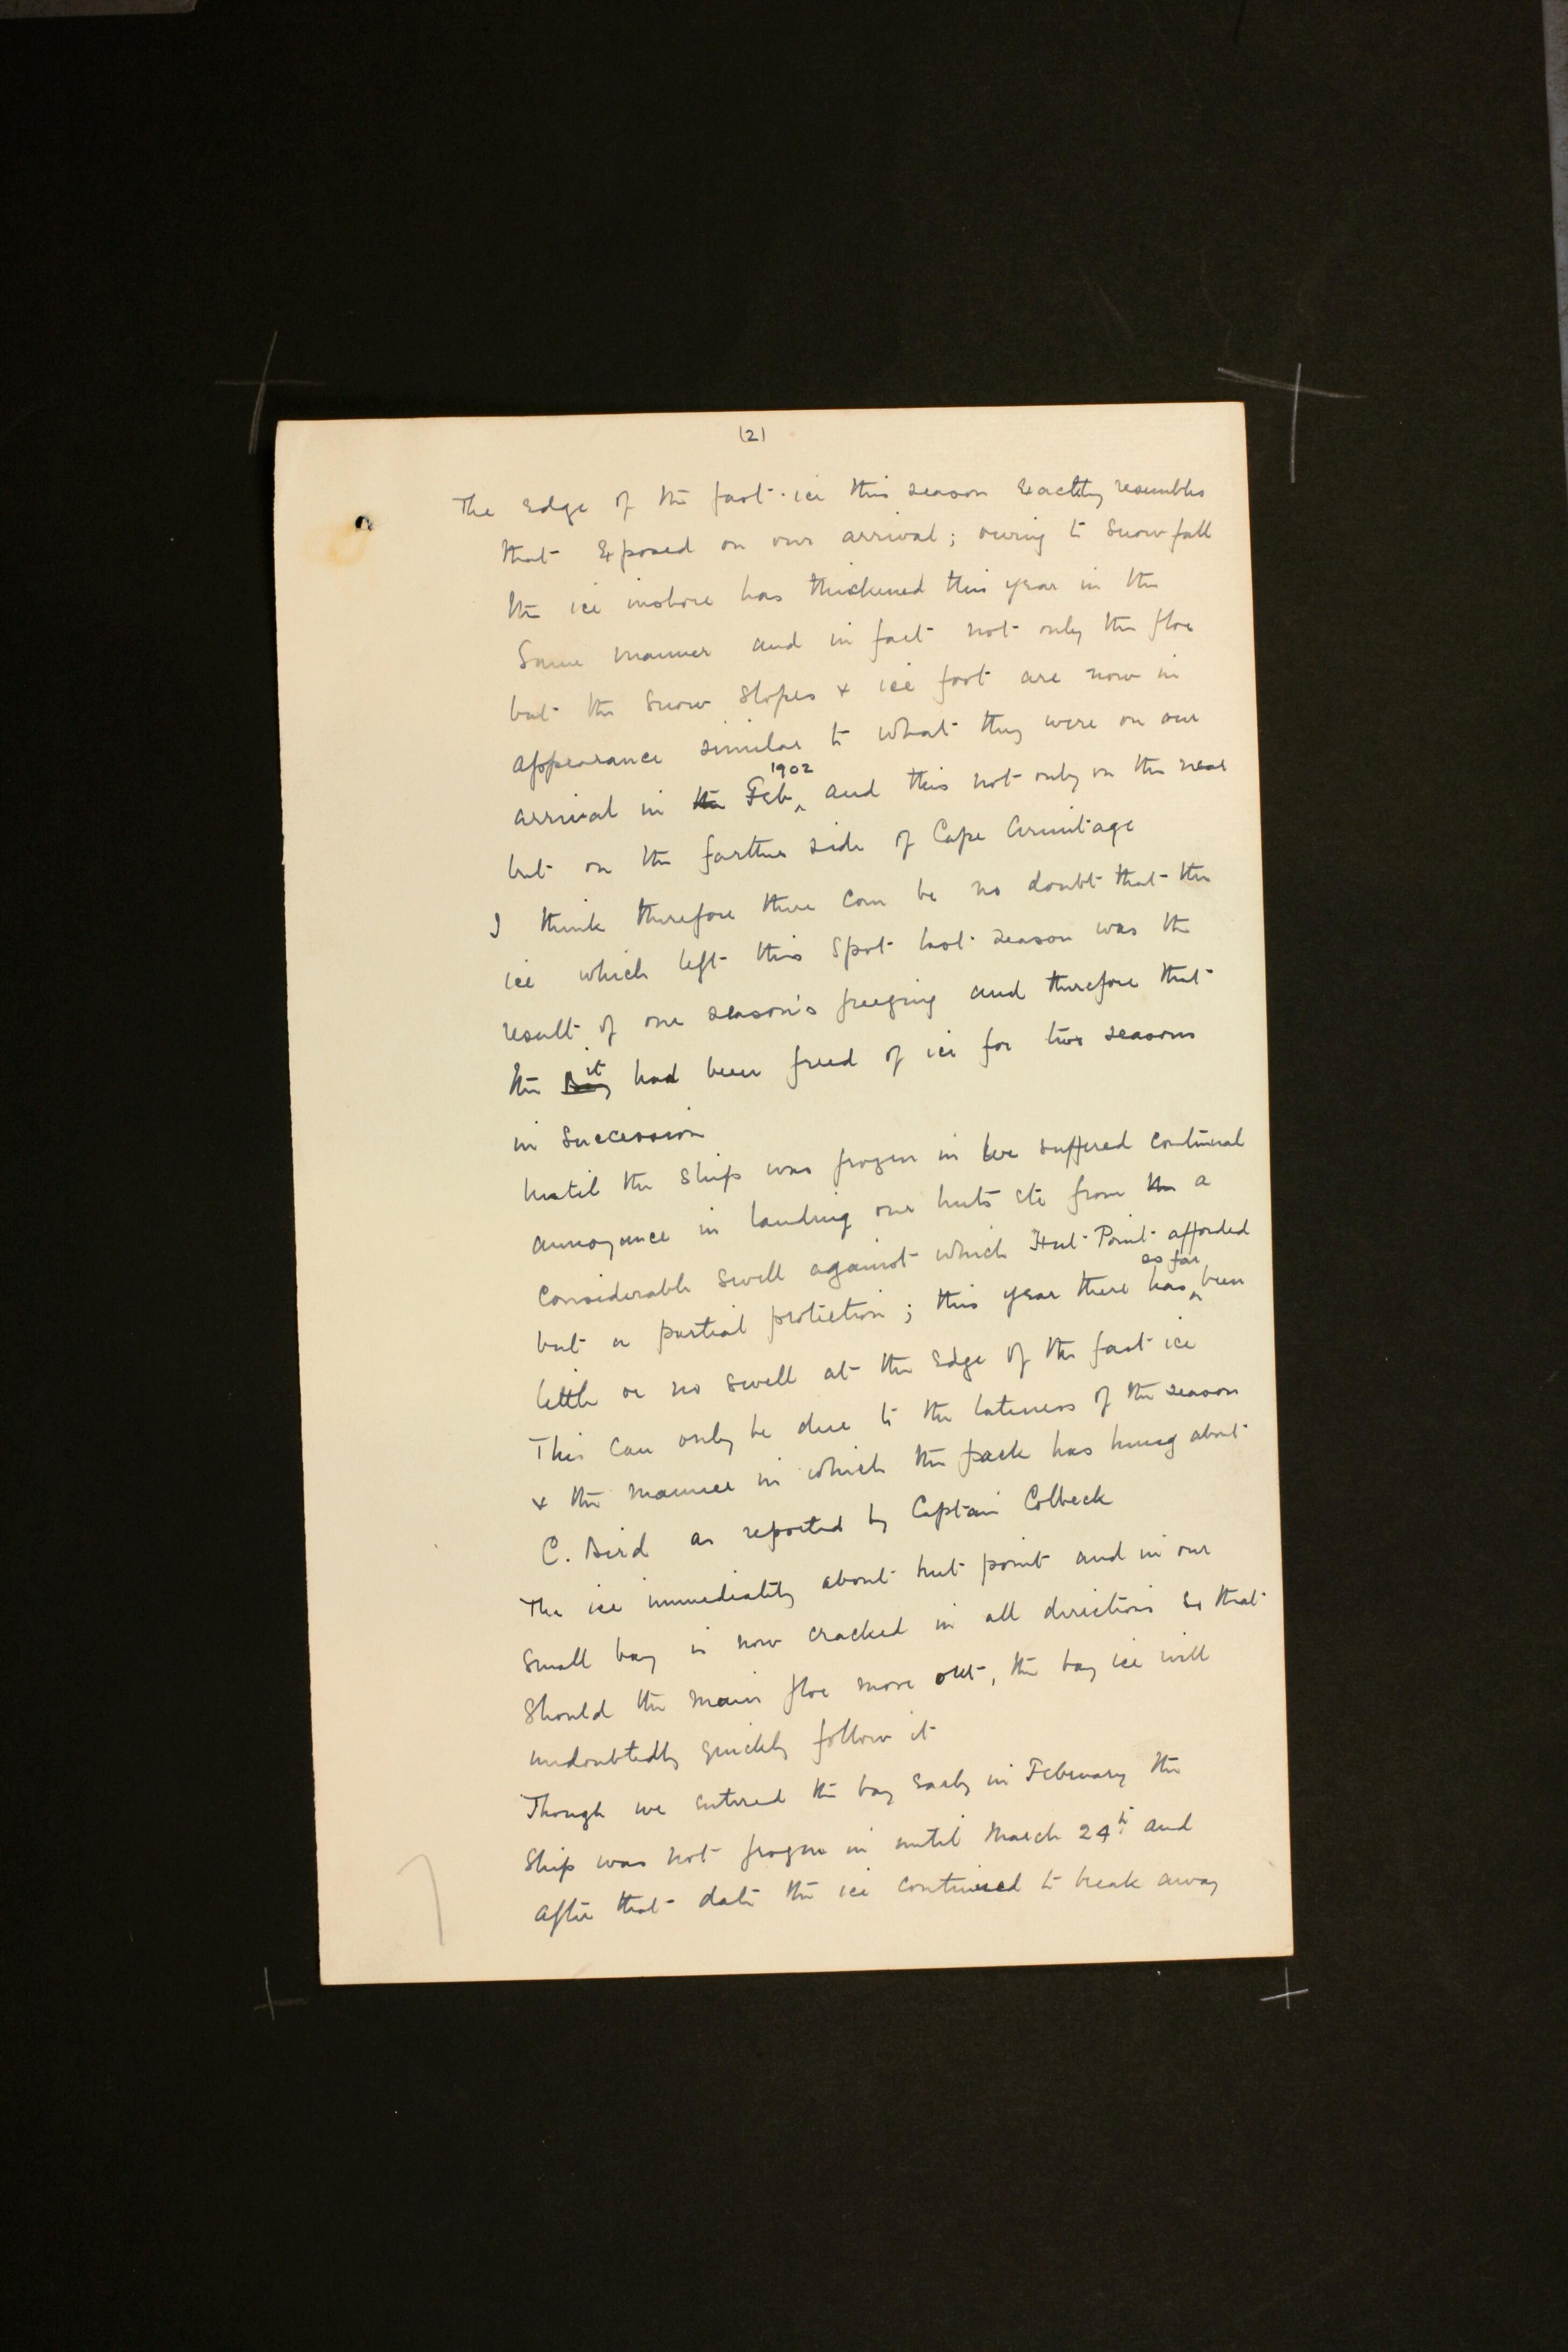 (2)
The edge of the fast-ice this season exactly resembles
that exposed on our arrival; owing to snow fall
the ice inshore has thickened this year in the
same manner and in fact not only the floe
but the snow slopes & ice foot are now in
appearance similar to what they were on our
arrival in the Feb 1902 and this not only on the near
but on the farther side of Cape Armitage
I think therefore there can be no doubt that the
ice which left this spot last season was the
result of one season's freezing and therefore that
the Bay it had been freed of ice for two seasons
in succession
Until the ship was frozen in we suffered continual
annoyance in landing our huts etc from the a
considerable swell against which Hut Point afforded
but a partial protection; this year there has so far been
little or no swell at the edge of the fast ice
This can only be due to the lateness of the season
& the manner in which the pack has hung about
C. Bird as reported by Captain Colbeck
The ice immediately about hut point and in our
small bay is now cracked in all directions so that
should the main floe move out, the bay ice will
undoubtedly quickly follow it
Though we entered the bay early in February the
ship was not frozen in until March 24th and
after that date the ice continued to break away